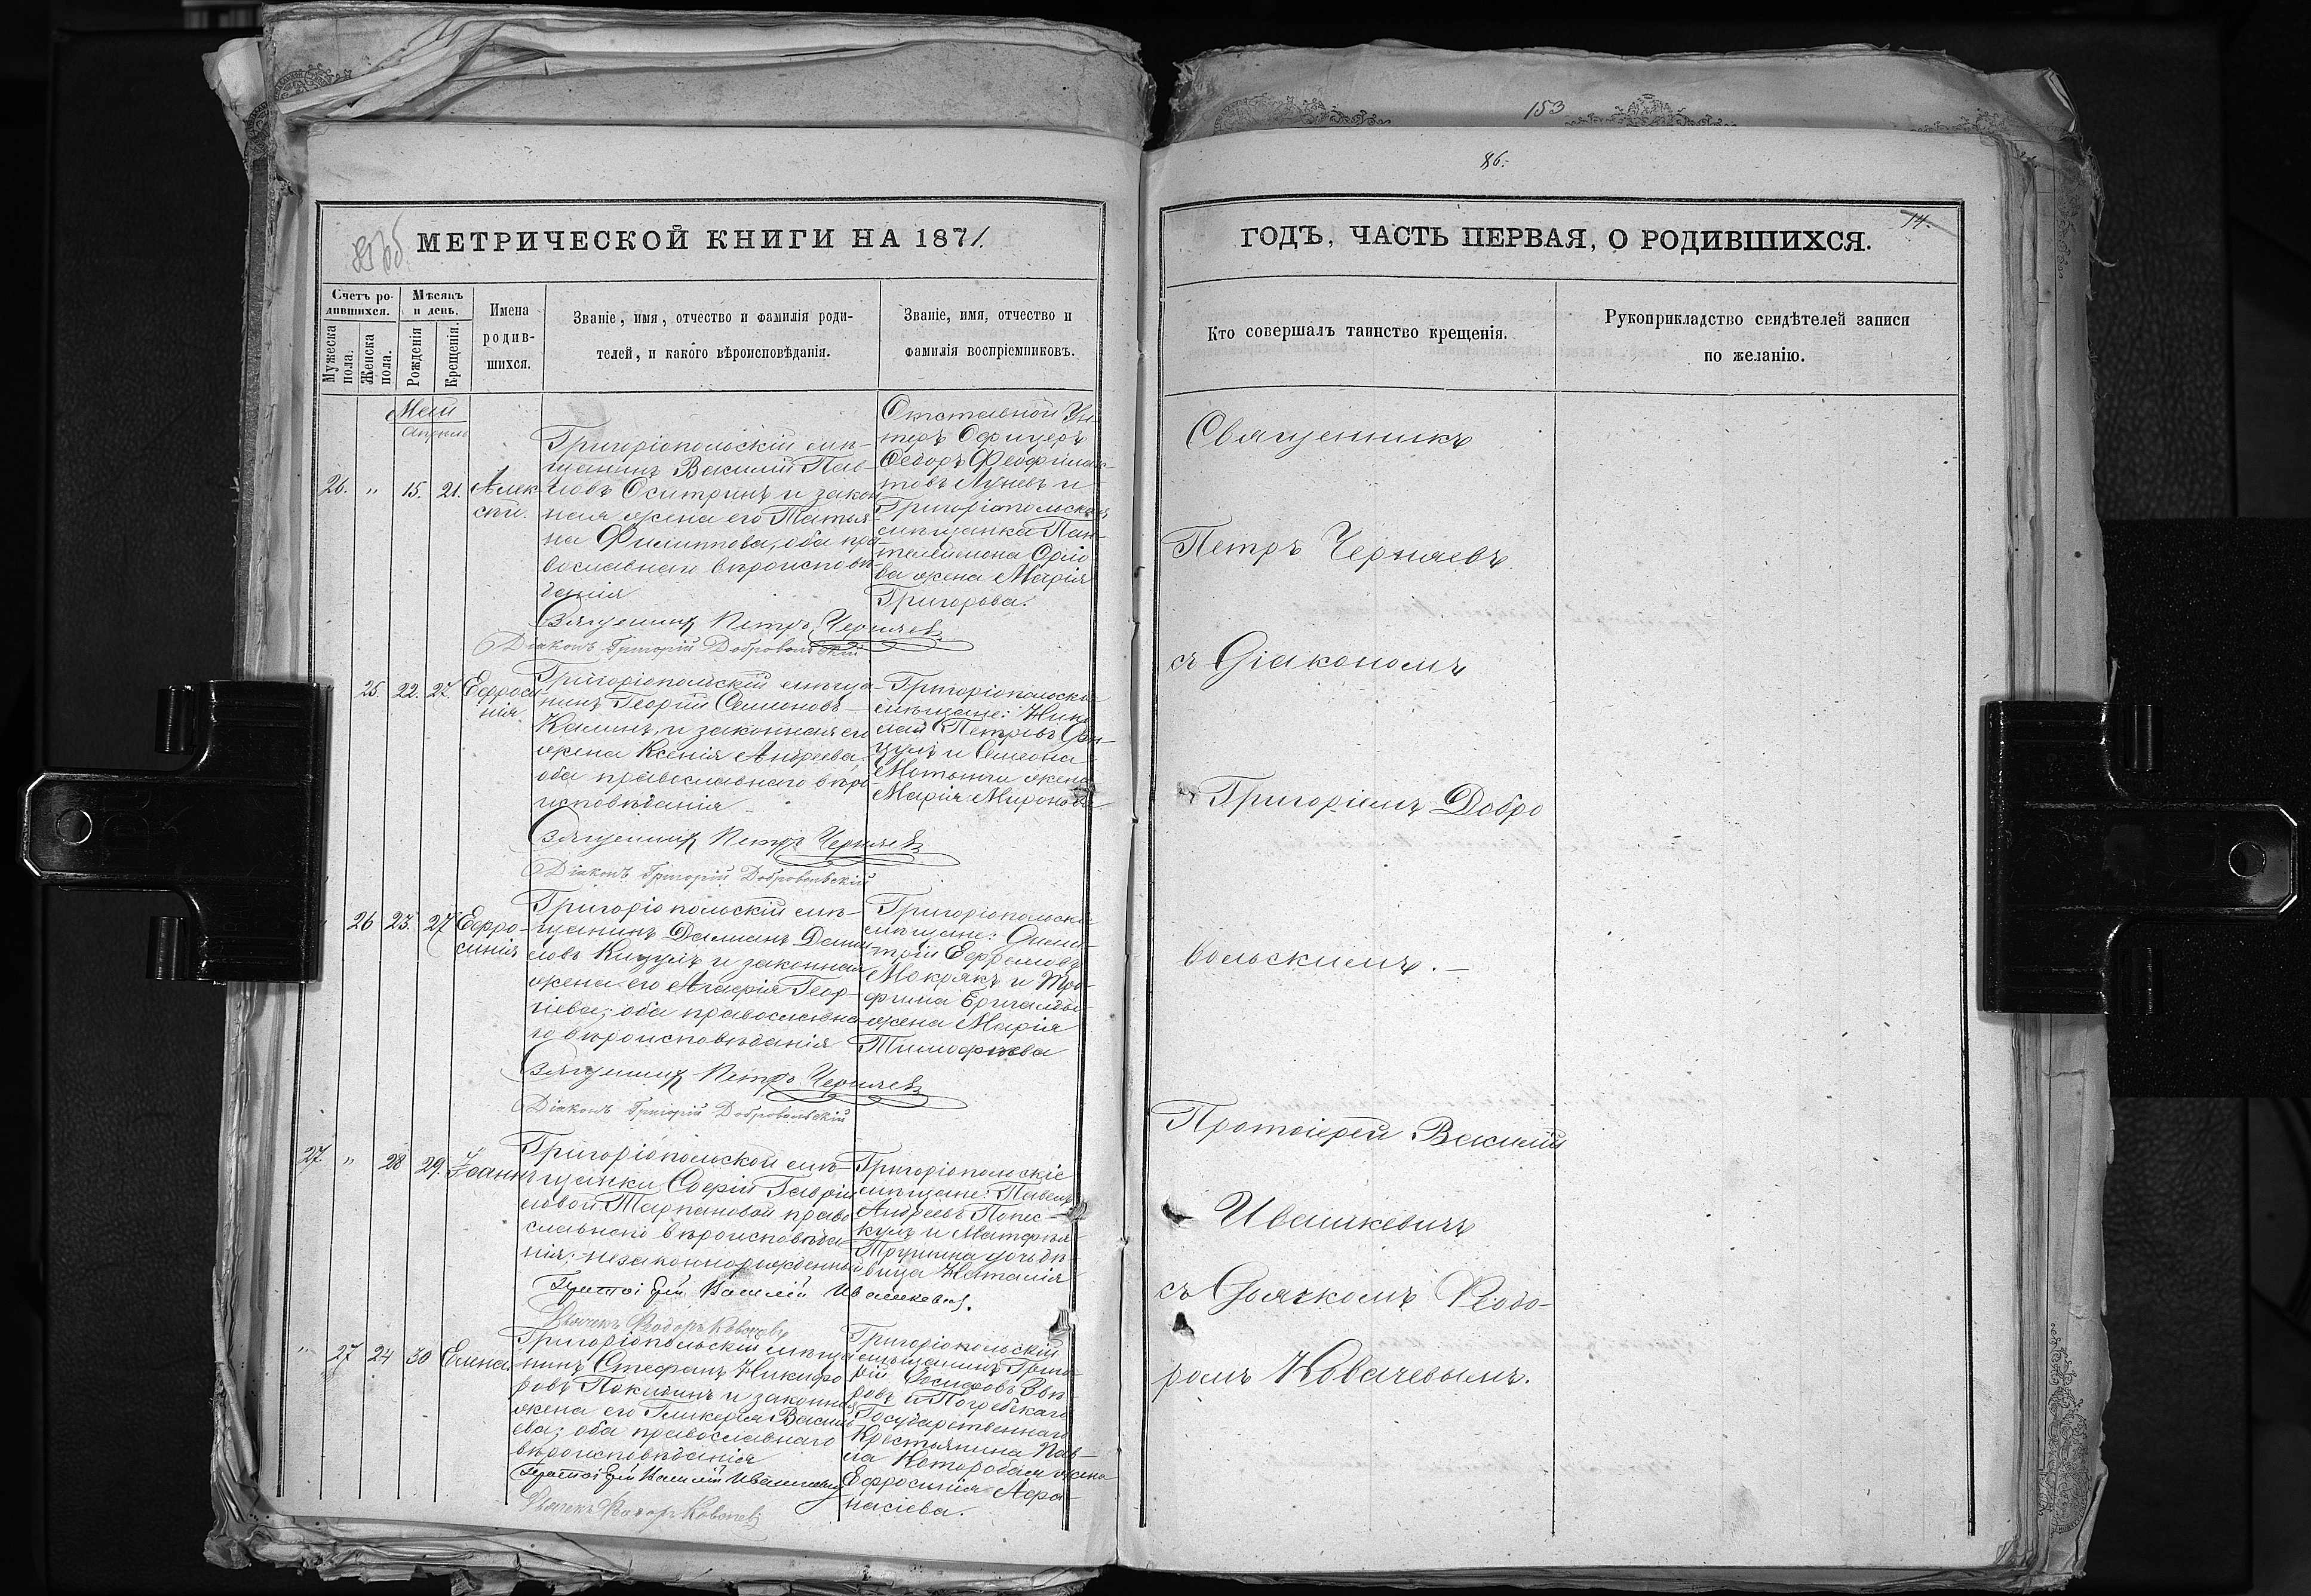 153
86.
14.
МЕТРИЧЕСКОЙ КНИГИ НА 1871.
Счетъ ро-
дившихся.
Мужеска пола.
Женска пола.
Мѣсяцъ
и день.
Рожденія
Крещенія.
Имена
родив-
шихся.
Званіе, имя, отчество и фамилія роди-
телей, и какого вѣроисповѣданія.
Званіе, имя, отчество и
фамилія воспріемниковъ.
Май
Апрель
26. " 15. 21.
Алек
сѣй.
Григоріопольскій мѣ-
щанинъ Василій Пав-
ловъ Осипринъ и закон
ная жена его Татья-
на Филиппова, оба пра-
вославнаго вѣроисповѣ-
данія
Отставной Ун-
теръ Офицеръ
Ѳедоръ Феофилак-
товъ Луневъ и
Григоріопольская
мѣщанка Пан-
телеимона Орло
ва жена Марія
Григорьева.
Священникъ Петръ Черняевъ
Діаконъ Григорій Добровольскій
25 22. 27.
Ефроси
нія
Григоріопольскій мѣща-
нинъ Георгій Семеновъ
Калинъ, и законная его
жена Ксенія Андреева
оба православнаго вѣро-
исповѣданія
Григоріопольскіе
мѣщане: Нико
лай Петровъ
и Симеона
жена
Марія Миронова
Священникъ Петръ Черняевъ
Діаконъ Григорій Добровольскій
26 23. 27
Ефро-
синія
Григоріопольскій мѣ-
щанинъ Даміанъ Дани
ловъ Кицулъ и законная
жена его Агафія Геор-
гіева; оба православна-
го вѣроисповѣданія
Григоріопольскіе
мѣщане: Дими-
трій Ефремовъ
Мокрякъ и Тро-
фима
жена Марія
Тимофѣева
Священникъ Петръ Черняевъ
Діаконъ Григорій Добровольскій
27. " 28 29.
Іоаннъ
Григоріопольской мѣ-
щанки Софіи Гаврии
ловой Тарпановой право
славнаго вѣроисповѣда
нія; незаконнорожденный
Григоріопольскіе
мѣщане: Павелъ
Андреевъ Попес-
кулъ и Матфѣя
Трушина дочь дѣ-
вица Наталія
Протоіерей Василій Ивашкевич.
Дьячекъ Ѳеодоръ Ковачевъ
" 27 24 30
Елена
Григоріопольскій мѣща
нинъ Стефанъ Никифо
ровъ Покитинъ и законная
жена его Гликерія Василь
ева; оба православнаго
вѣроисповѣданія
Григоріопольскій
мѣщанинъ Григо-
рій Іосифовъ Звѣ
ревъ и Погребскаго
Государственнаго
Крестьянина Пав-
ла Которобая жена
Ефросинія Афа-
насіева.
Протоіерей Василій Ивашкевич
Дьячекъ Ѳеодоръ Ковачевъ
ГОДЪ, ЧАСТЬ ПЕРВАЯ, О РОДИВШИХСЯ.
Кто совершалъ таинство крещенія.
Рукоприкладство свидѣтелей записи
по желанію.
Священникъ
Петръ Черняевъ
съ Діакономъ
Григоріемъ Добро
вольскимъ.
Протоіерей Василій
Ивашкевичъ
съ Дьячкомъ Ѳеодо-
ромъ Ковачевымъ.